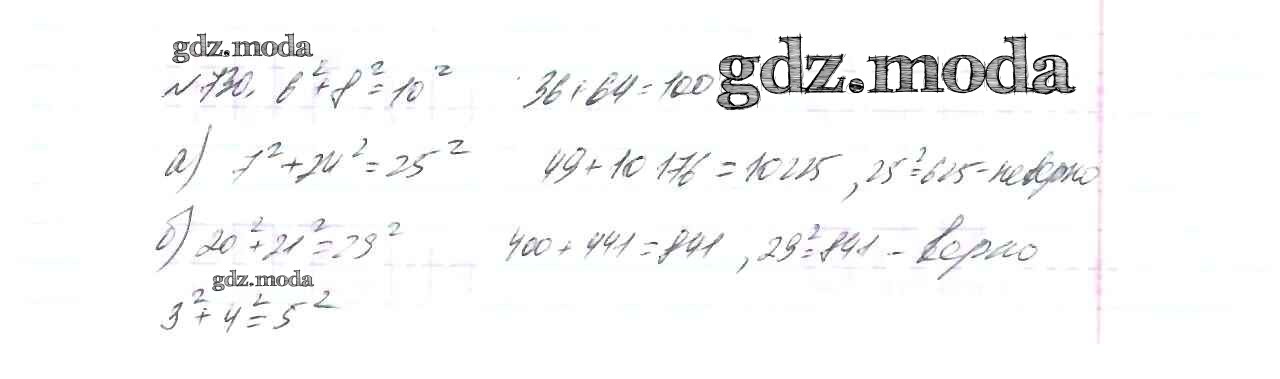 gdz.moda
№ 730. 6² + 8² = 10² 36 + 64 = 100 gdz.moda
а) 7² + 24² = 25² 49 + 10 176 = 10225, 25² = 625 - неверно
б) 20² + 21² = 29² 400 + 441 = 841, 29² = 841 - верно
gdz.moda
3² + 4² = 5²